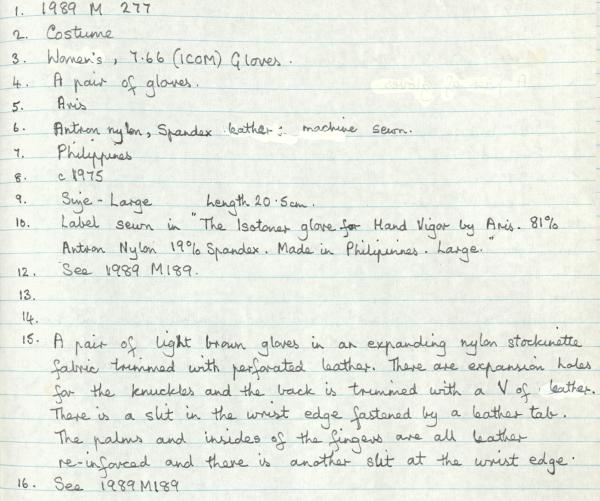 1. 1989 M 277
2. Costume
3. Women's, 7.66 (ICOM) Gloves.
4. A pair of gloves.
5. Aris
6. Antron nylon, Spandex leather: machine sewn.
7. Philippines
8. c 1975
9. Size - Large Length 20.5cm.
10. Label sewn in "The Isotoner glove for Hand Vigor by Aris. 81%
Antron Nylon 19% Spandex. Made in Philipinnes. Large."
12. See 1989 M189.
13.
14.
15. A pair of light brown gloves in an expanding nylon stockinette
fabric trimmed with perforated leather. There are expansion holes
for the knuckles and the back is trimmed with a V of leather.
There is a slit in the wrist edge fastened by a leather tab.
The palms and insides of the fingers are all leather
re-inforced and there is another slit at the wrist edge.
16. See 1989M189